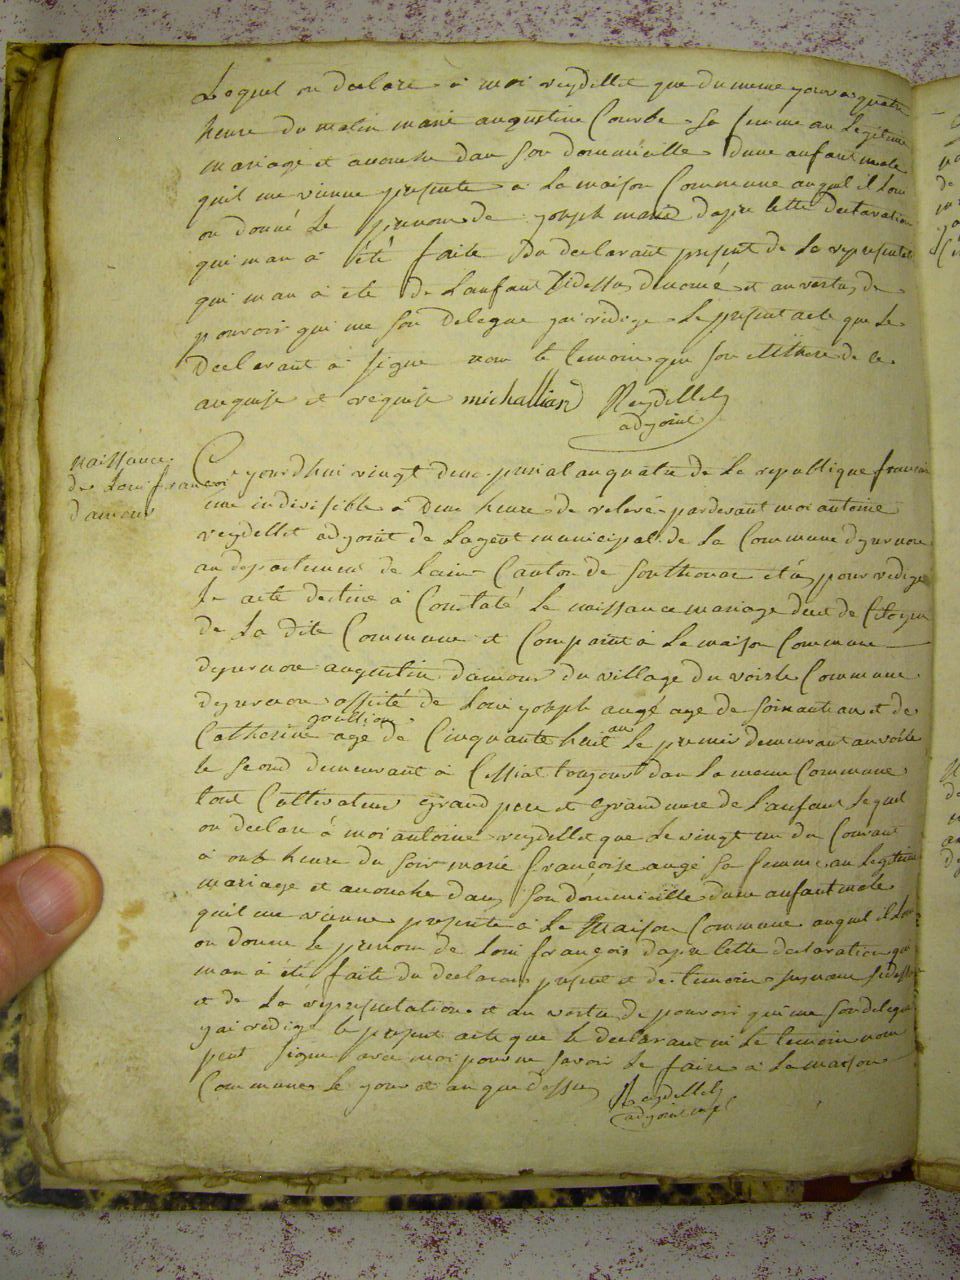 Lequel on declare a moi reydellet que du meme jour a quatre
heure du matin marie augustine Courbe sa femme an legitime
mariage et acouche dan son domicille dune anfant male
quil me vienne presente a la maison Commune auquel il lon
on donné le prenom de joseph marie dapre cette declaration
qui man a été faite du declarant present de la representation
qui man a ete de lanfant sidessus denomé et an vertus de
pouvoir qui me son delegue jai redige le present acte que le
declarant a signe non le temoin qui son illitere de ce
anquise et requise michalliard Reydellet
adjoint
naissance
de Loui francoi
damons
Ce jourdhui vingt deux presial an quatre de la republique francoise
une indivisible a deux heure de relevé pardevant moi antoine
reydellet adjoint de lagent municipal de la Commune dyzernore
au departement de lain Canton de Sonthonax elu pour redige
le acte destine a Constaté la naissance mariage deces de Citoyen
de la dite Commune et Comparut a la maison Commune
dyzernore augustin damons du village du voisle Commune
dyzernore assisté de Loui joseph augé age de soixante an et de
goullion
Catherine age de Cinquante huit an le premier demeurant au voisle
le second demeurant a Cessiat toujours dan la meme Commune
tout Cultivateur grand pere et grand mere de lanfant lequel
on declare a moi antoine reydellet que le vingt un du Courant
a onze heure du soir marie francoise augé sa femme an legitime
mariage et acouche dans son domicille dune anfant male
quil me vienne presente a la maison Commune auquel il lon
on donne le prenom de Loui francois dapre cette declaration qui
man a été faite du declarant present et de temoin susnome sidessus
et de la representation et an vertu de pouvoir qui me son delegué
jai redige le present acte que le declarant ni le temoin non
peut signe avec moi pour ne savoir le faire a la maison
Commune le jour et an que dessus Reydellet
adjoint mpl